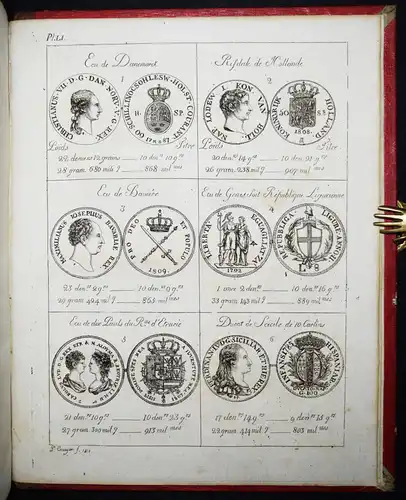 Pl. LI.
Ecu de Danemarct
1
CHRISTIANUS·VII·D·G·DAN·NORV·V·G·REX
60 SCHILLING SCHLESW·HOLST·COURANT
H. SP.
1787
Poids Titre
22 deniers 12 grains 10 den 10 gns
28 gram 680 mil 868 mil mes
Risdick de Hollande
2
NAP. LODEW. I KON. VAN HOLL.
KONINGRIJK HOLLAND
50 Ss
1808.
Poids Titre
20 den 14 gns 10 den 21 gns
26 gram 238 mil 907 mil mes
Ecu de Bavière
3
MAXIMILIANUS IOSEPHUS BAVARIAE REX
PRO DEO ET POPULO
1809.
23 den 2 gns 10 den 9 gns
29 gram 424 mil 863 mil mes
Ecu de Gênes, soit République Ligurienne
4
LIBERTA EGUAGLIANZA
1798
REPUBBLICA LIGURE·ANNO·I
L. 8
1 once 2 den 10 den 16 gns
33 gram 143 mil 889 mil mes
Ecu de dix Pauls du Rme d'Etrurie
5
21 den 10 gns 10 den 23 gns
27 gram 300 mil 913 mil mes
Ducat de Sicile de 10 Carlins
6
FERDINAND·D·G·SICILIAR·ET·HIE·REX
HISPANIAR INFANS
G·100
17 den 14 gns 9 den 15 gns
22 gram 414 mil 803 mil mes